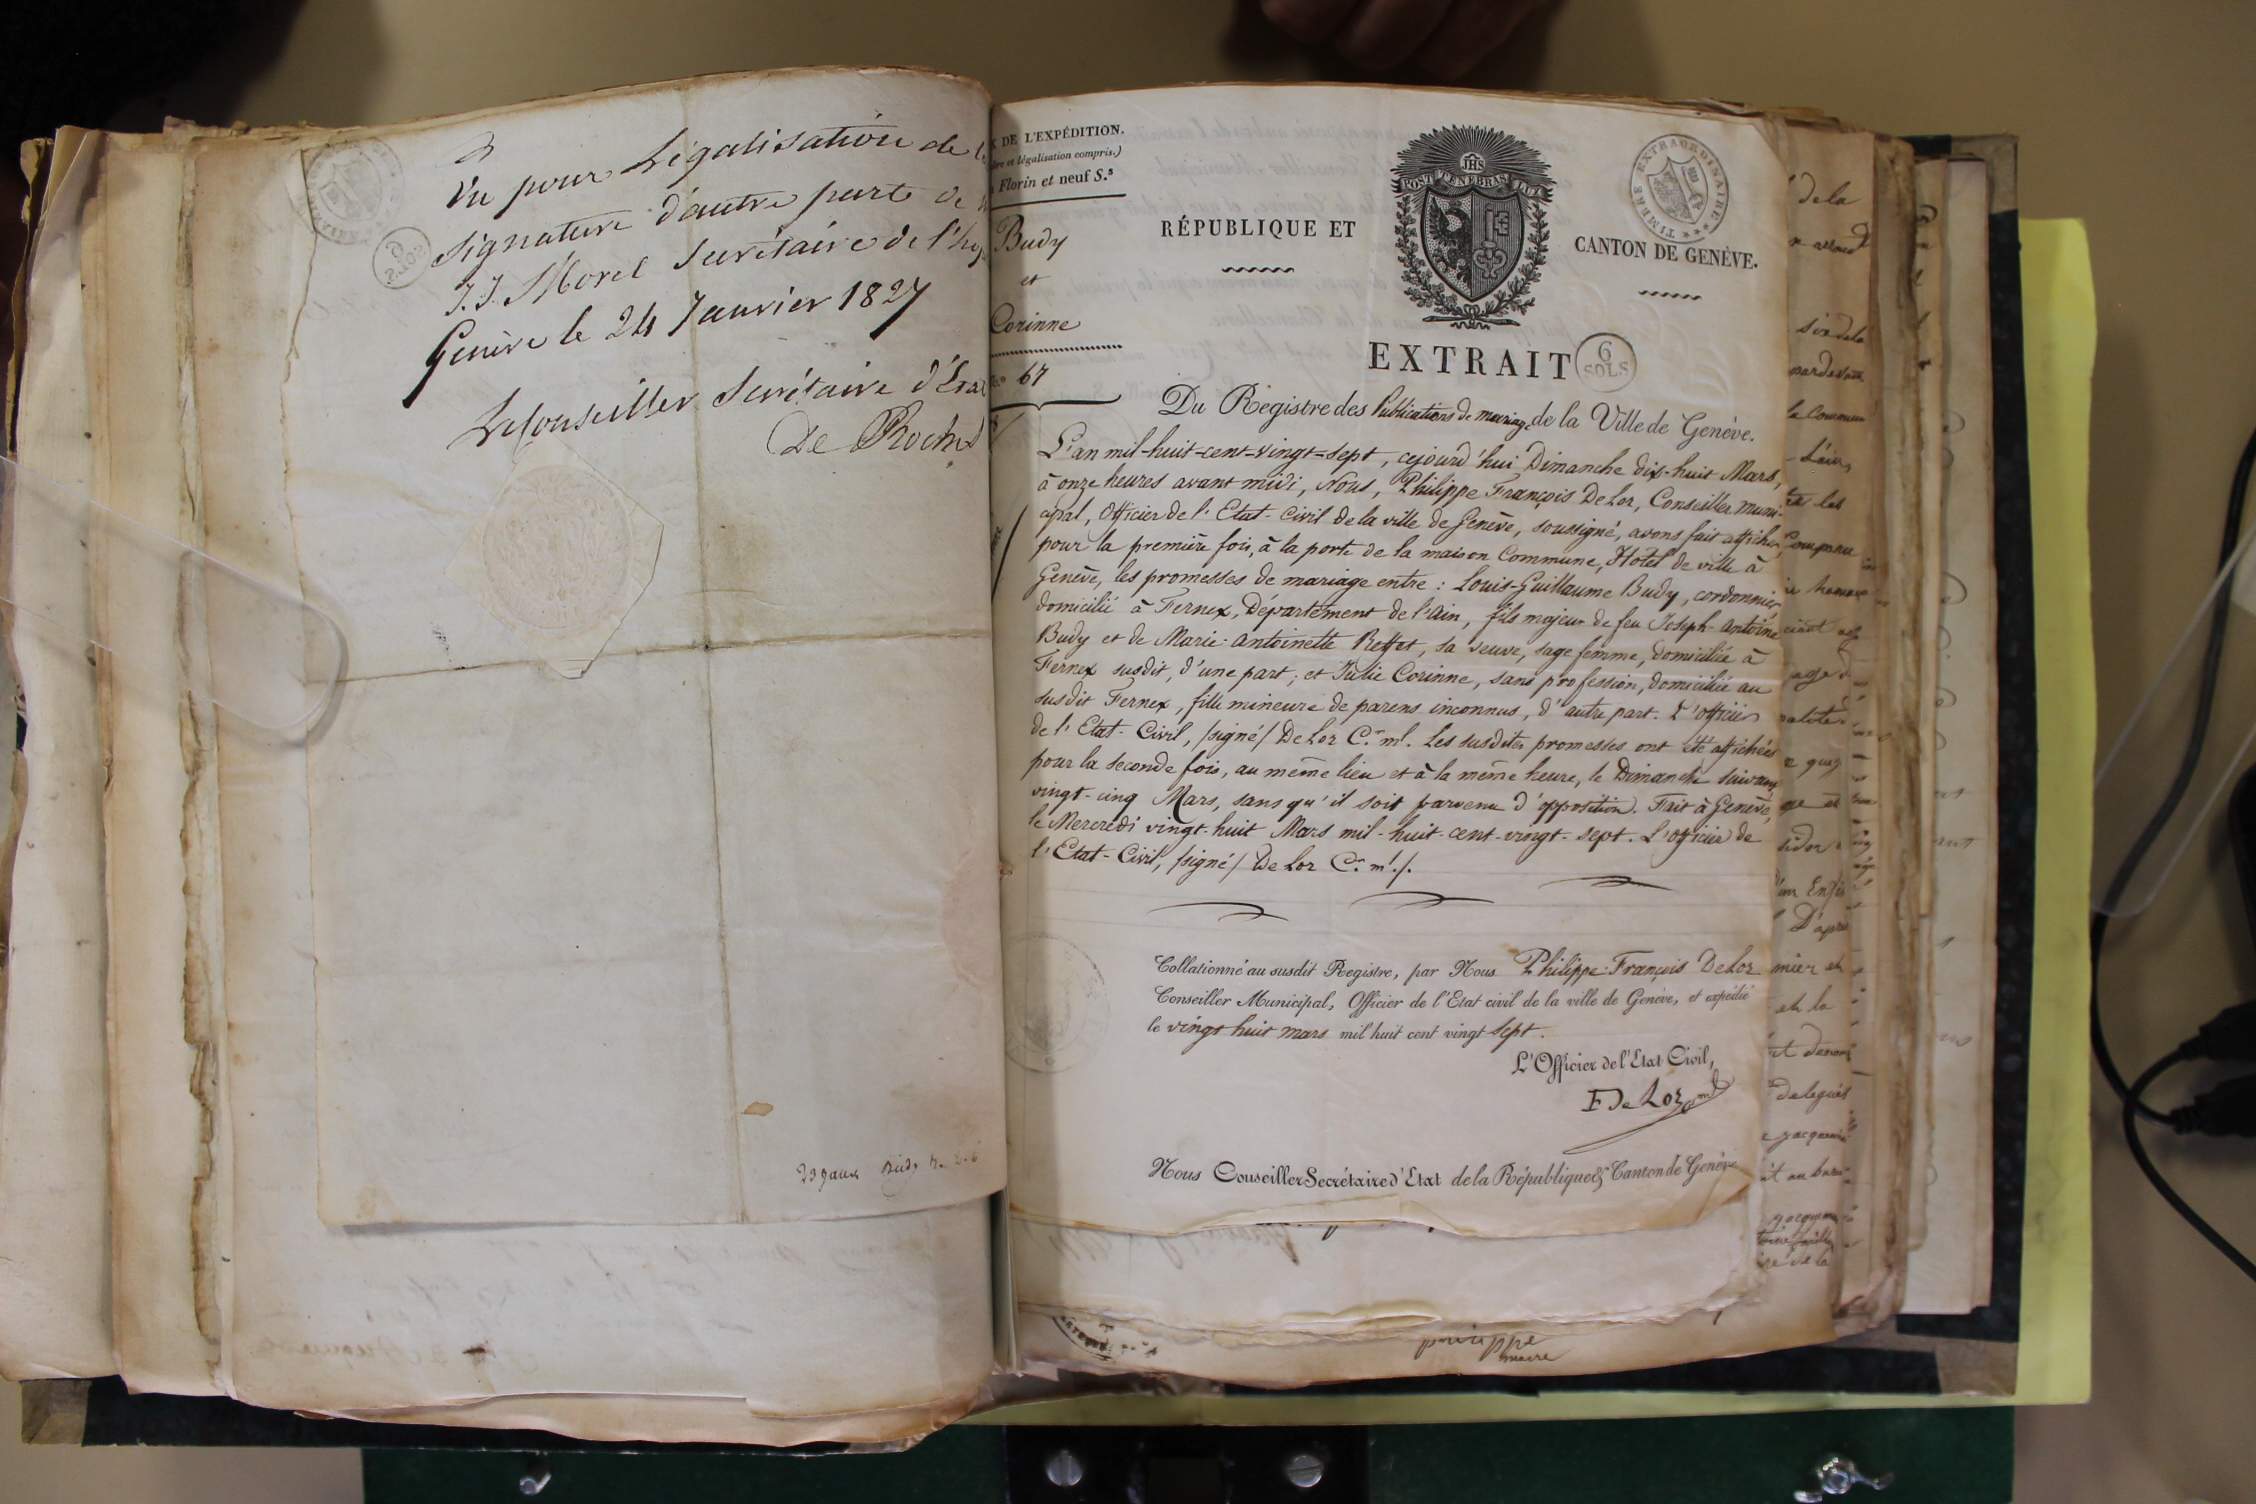 Vu pour Légalisation de
signature d'autre part de
J. J. Morel Secrétaire de l'
Genève le 24 Janvier 1827
Le Conseiller Secrétaire d'Etat
De Roche
6
SOLS
23 janv
DE L'EXPÉDITION.
et légalisation compris.)
Florin et neuf S.s
Budy
et
Corinne
67
POST TENEBRAS LUX
JHS
TIMBRE EXTRAORDINAIRE
RÉPUBLIQUE ET
CANTON DE GENÈVE.
EXTRAIT
6
SOLS
Du Registre des Publications de mariage de la Ville de Genève.
L'an mil-huit-cent-vingt-sept, cejourd'hui Dimanche dix-huit Mars,
à onze heures avant midi, Nous, Philippe François DeLor, Conseiller muni-
cipal, Officier de l'Etat-Civil de la ville de Genève, soussigné, avons fait afficher
pour la première fois, à la porte de la maison Commune, Hôtel de ville à
Genève, les promesses de mariage entre : Louis-Guillaume Budy, cordonnier
domicilié à Fernex, Département de l'Ain, fils majeur de feu Joseph-Antoine
Budy et de Marie-Antoinette Reffet, sa veuve, sage femme, domiciliée à
Fernex susdit, d'une part; et Julie Corinne, sans profession, domiciliée au
susdit Fernex, fille mineure de parens inconnus, d'autre part. L'officier
de l'Etat-Civil, /signé/ DeLor C.r m.l. Les susdites promesses ont été affichées
pour la seconde fois, au même lieu et à la même heure, le Dimanche suivant
vingt-cinq Mars, sans qu'il soit parvenu d'opposition. Fait à Genève,
le Mercredi vingt-huit Mars mil-huit-cent-vingt-sept. L'officier de
l'Etat-Civil, /signé/ DeLor C.r m.l./.
Collationné au susdit Registre, par Nous Philippe-François DeLor
Conseiller Municipal, Officier de l'Etat civil de la ville de Genève, et expédié
le vingt huit mars mil huit cent vingt Sept.
L'Officier de l'Etat Civil,
F DeLor
Nous Conseiller Secrétaire d'Etat de la République & Canton de Genève
de la
la commun
L'ain,
mier et
et la
delegués
philippe
maire